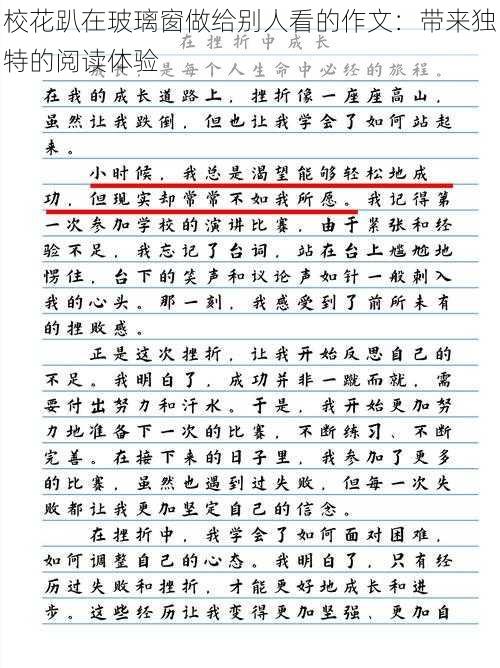 校花趴在玻璃窗做给别人看的作文：带来独
特的阅读体验
在挫折中成长
成长，是每个人生命中必经的旅程。
在我的成长道路上，挫折像一座座高山，
虽然让我跌倒，但也让我学会了如何站起
来。
小时候，我总是渴望能够轻松地成
功，但现实却常常不如我所愿。我记得第
一次参加学校的演讲比赛，由于紧张和经
验不足，我忘记了台词，站在台上尴尬地
愣住，台下的笑声和议论声如针一般刺入
我的心头。那一刻，我感受到了前所未有
的挫败感。
正是这次挫折，让我开始反思自己的
不足。我明白了，成功并非一蹴而就，需
要付出努力和汗水。于是，我开始更加努
力地准备下一次的比赛，不断练习、不断
完善。在接下来的日子里，我参加了更多
的比赛，虽然也遇到过失败，但每一次失
败都让我更加坚定自己的信念。
在挫折中，我学会了如何面对困难，
如何调整自己的心态。我明白了，只有经
历过失败和挫折，才能更好地成长和进
步。这些经历让我变得更加坚强、更加自